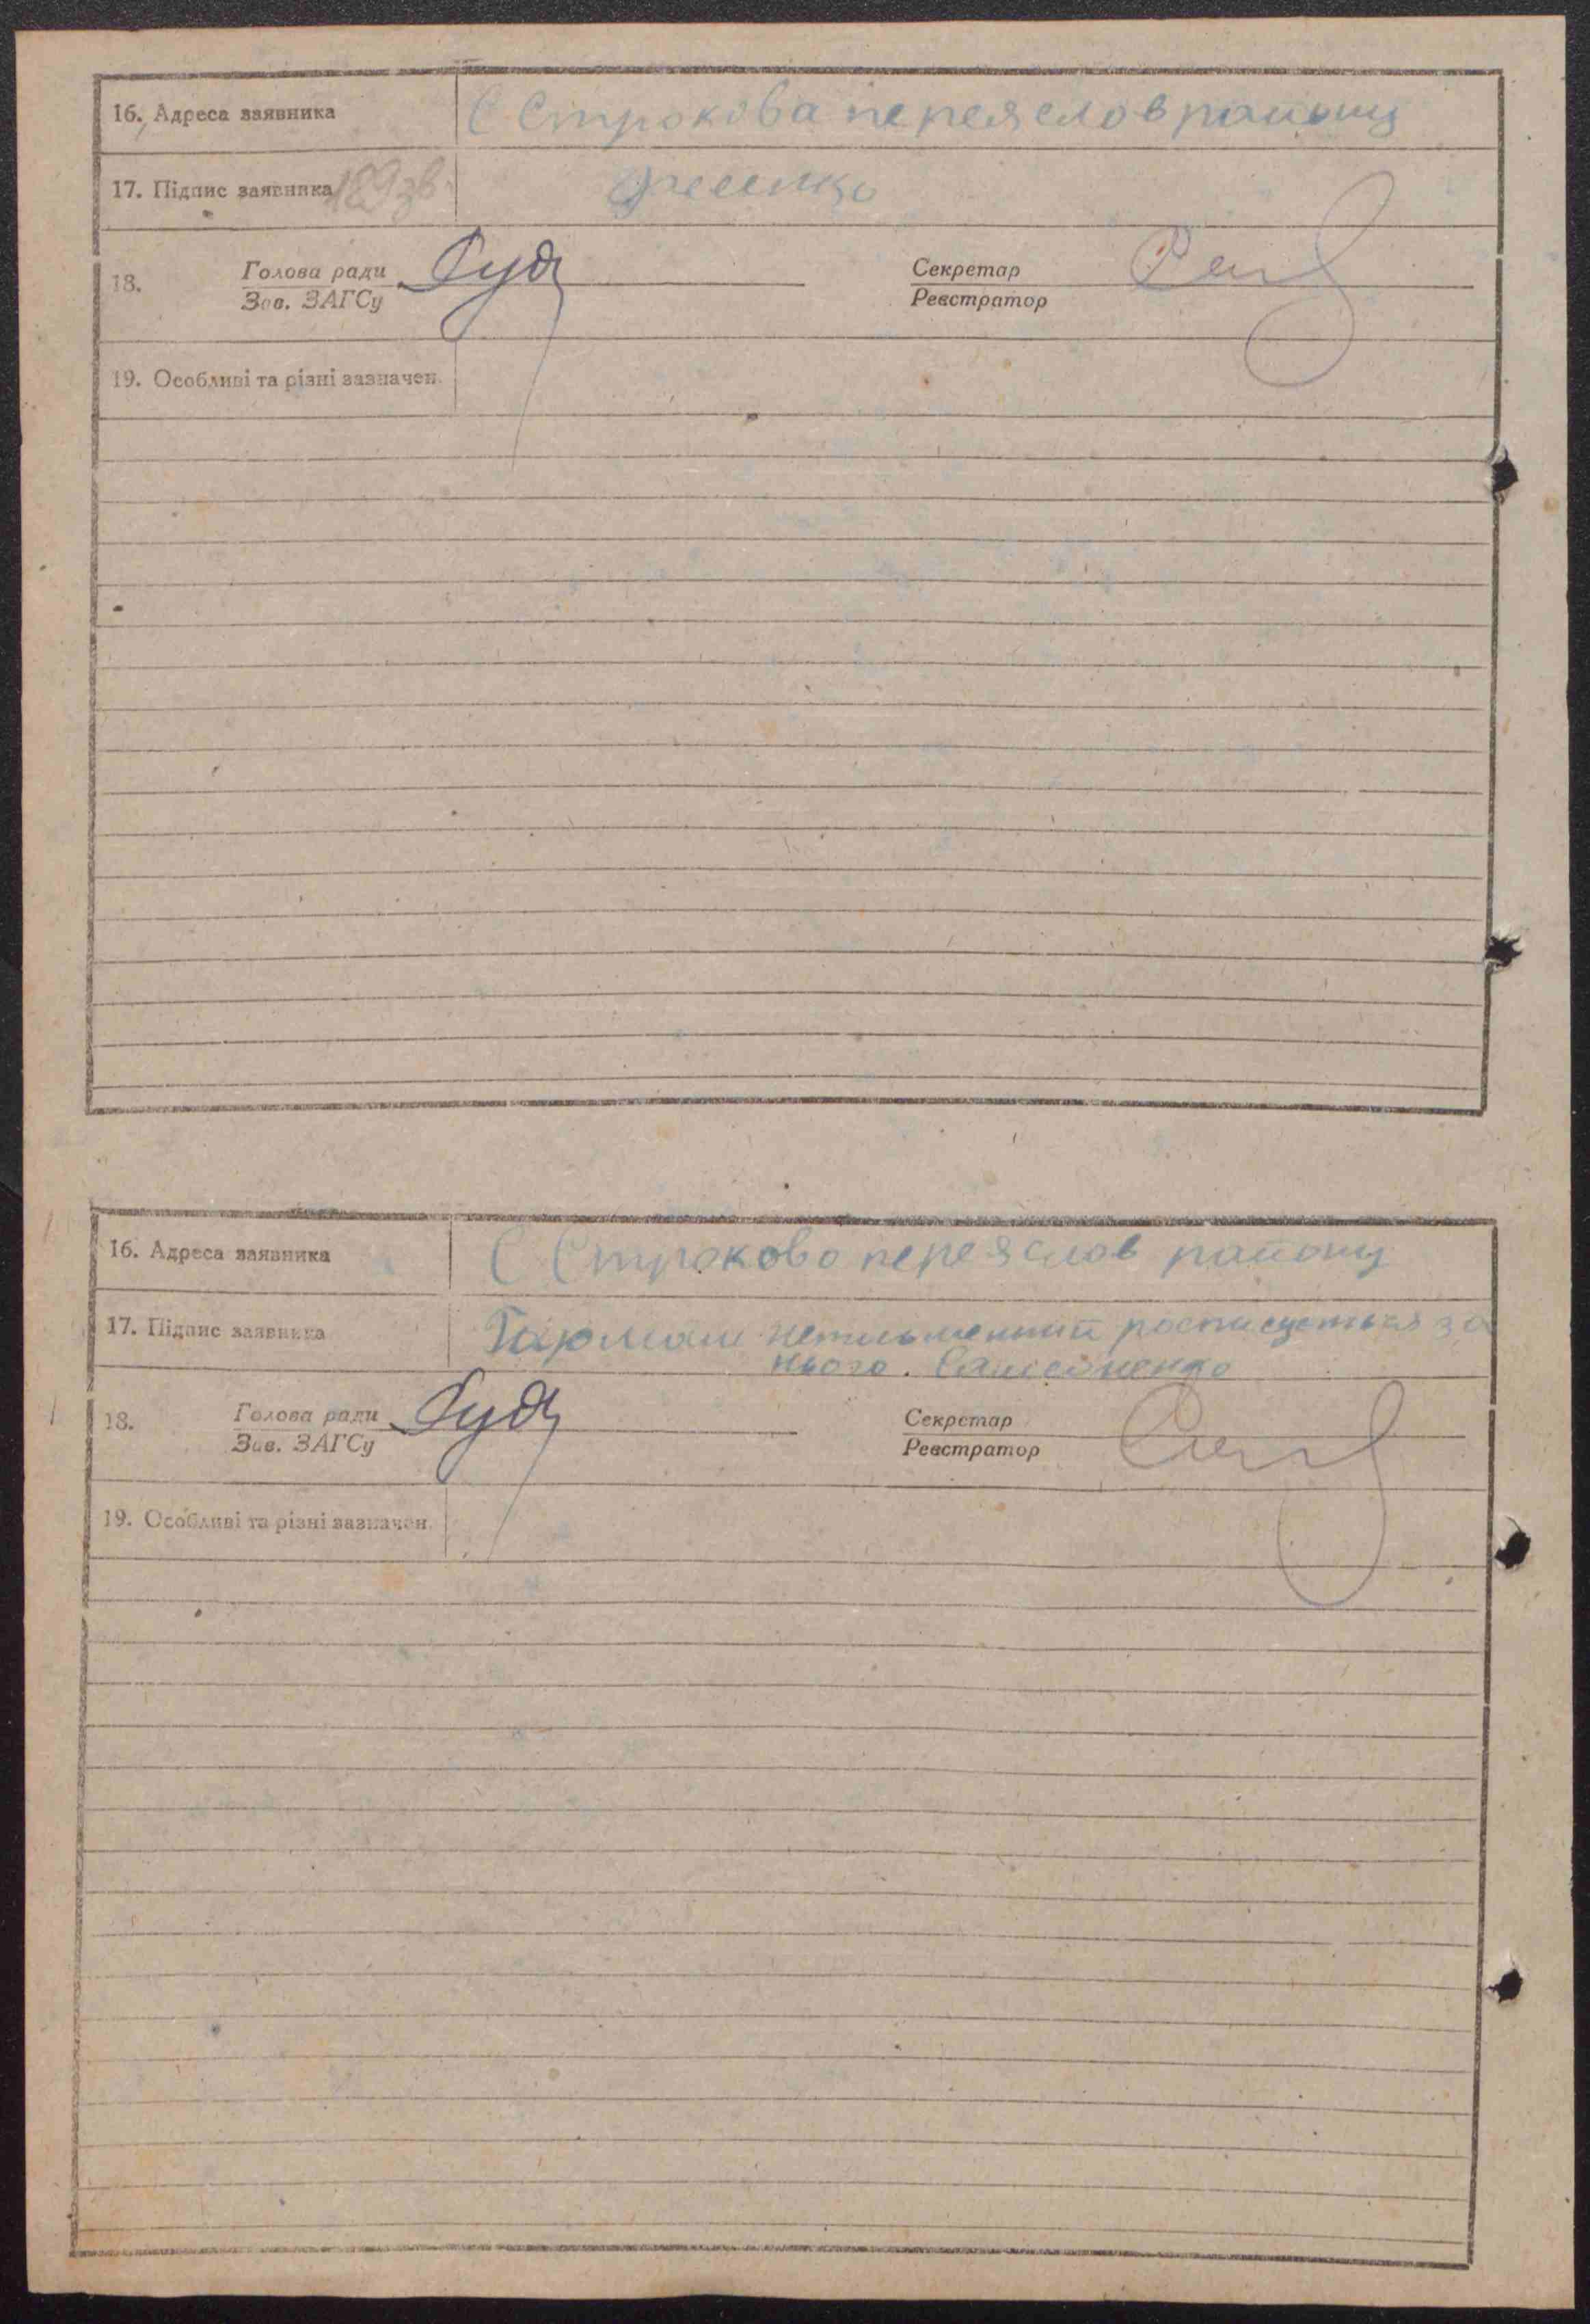 16. Адреса заявника С Строкова переяслов району
17. Підпис заявника 189зв
18. Голова ради Секретар
Зав. ЗАГСу Реєстратор
19. Особливі та різні зазначен.
16. Адреса заявника С Строково переяслов району
17. Підпис заявника неписьменний росписується за
нього.
18. Голова ради Секретар
Зав. ЗАГСу Реєстратор
19. Особливі та різні зазначен.